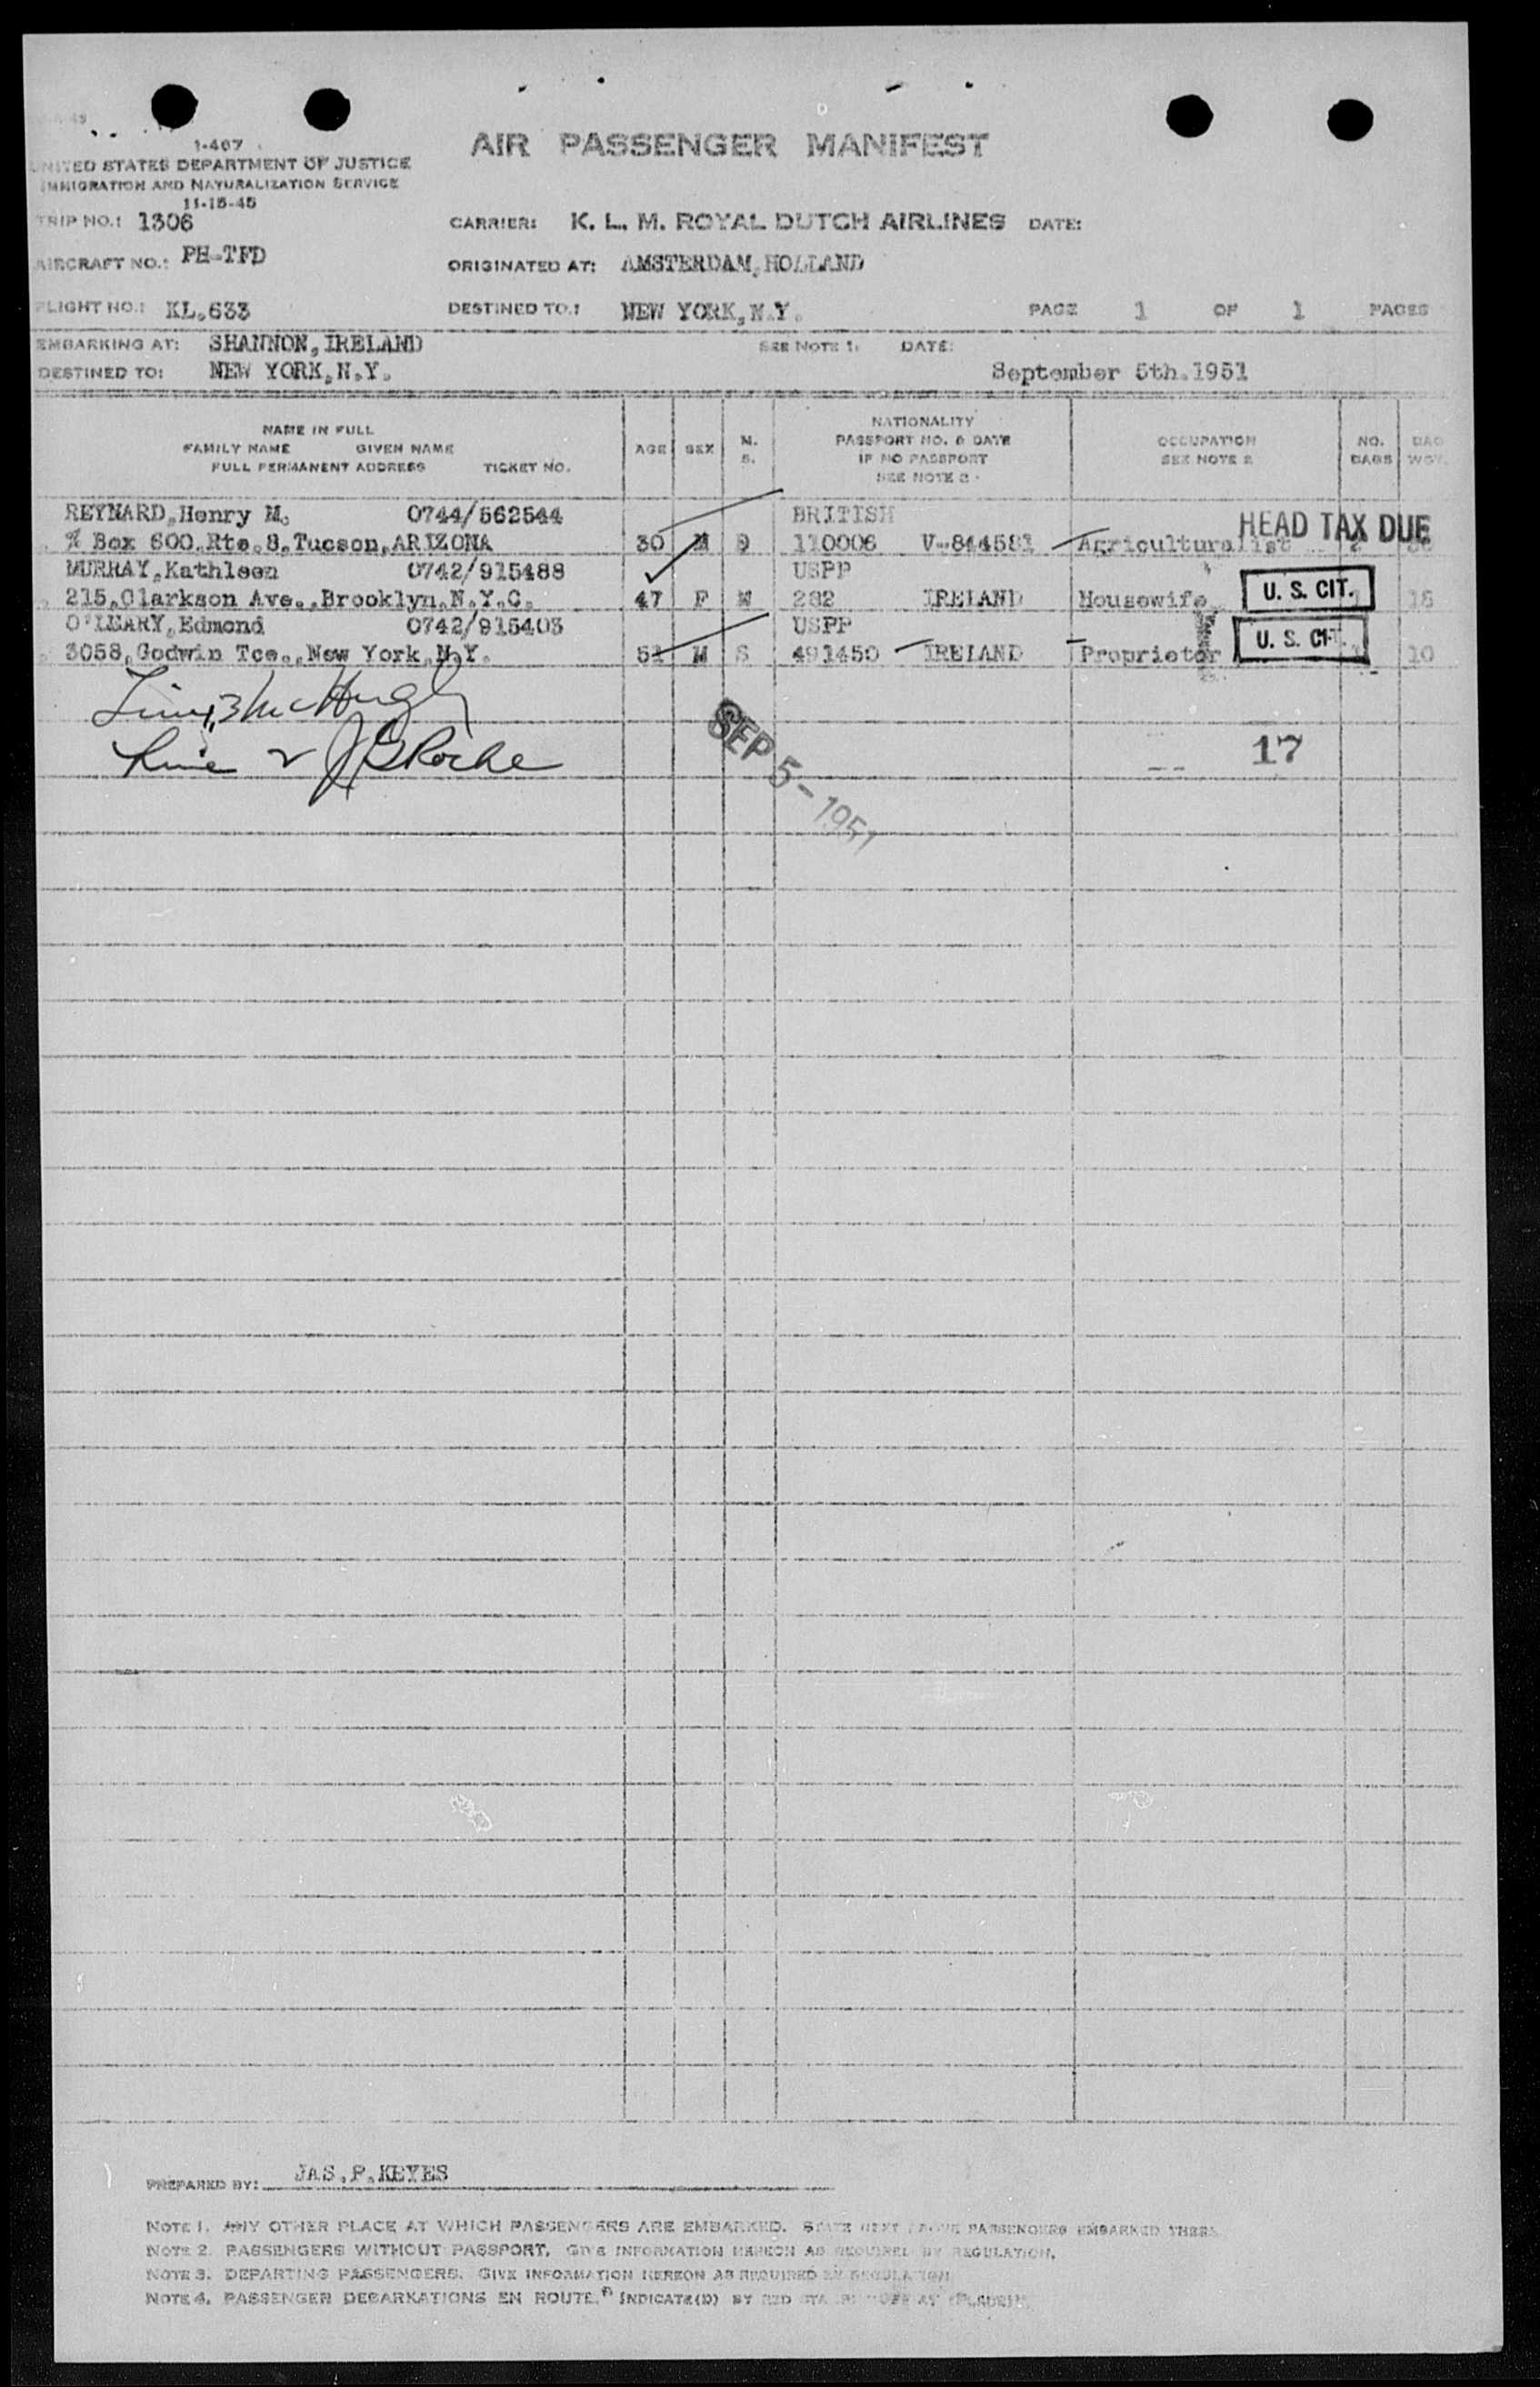 1-407
UNITED STATES DEPARTMENT OF JUSTICE
IMMIGRATION AND NATURALIZATION SERVICE
11-15-45
AIR PASSENGER MANIFEST
TRIP NO.: 1306 CARRIER: K. L. M. ROYAL DUTCH AIRLINES DATE:
AIRCRAFT NO.: PH-TFD ORIGINATED AT: AMSTERDAM,HOLLAND
FLIGHT NO.: KL.633 DESTINED TO.: NEW YORK,N.Y. PAGE 1 OF 1 PAGES
EMBARKING AT: SHANNON,IRELAND SEE NOTE 1. DATE:
DESTINED TO: NEW YORK,N.Y. September 5th.1951
NAME IN FULL
FAMILY NAME GIVEN NAME
FULL PERMANENT ADDRESS TICKET NO.
AGE SEX M. S.
NATIONALITY
PASSPORT NO. & DATE
IF NO PASSPORT
SEE NOTE 2
OCCUPATION
SEE NOTE 2
NO. BAGS
BAG WGT.
REYNARD,Henry M. 0744/562544 BRITISH HEAD TAX DUE
% Box 600,Rte.8,Tucson,ARIZONA 30 M 110006 V-844581 Agriculturalist 2
MURRAY,Kathleen 0742/915488 USPP
215,Clarkson Ave.,Brooklyn,N.Y.C. 47 F W 282 IRELAND Housewife U. S. CIT.
O'LEARY,Edmond 0742/915403 USPP
3058,Godwin Tce.,New York,N.Y. M S 491450 IRELAND Proprietor U. S. CIT. 10
3 McHugh
Line 2 Roche
SEP 5-1951
17
PREPARED BY: JAS.P.KEYES
NOTE 1. ANY OTHER PLACE AT WHICH PASSENGERS ARE EMBARKED. STATE NEXT ABOVE PASSENGERS EMBARKED THERE
NOTE 2. PASSENGERS WITHOUT PASSPORT. GIVE INFORMATION HEREON AS REQUIRED BY REGULATION.
NOTE 3. DEPARTING PASSENGERS. GIVE INFORMATION HEREON AS REQUIRED BY REGULATION
NOTE 4. PASSENGER DEBARKATIONS EN ROUTE. INDICATE(D) BY RED